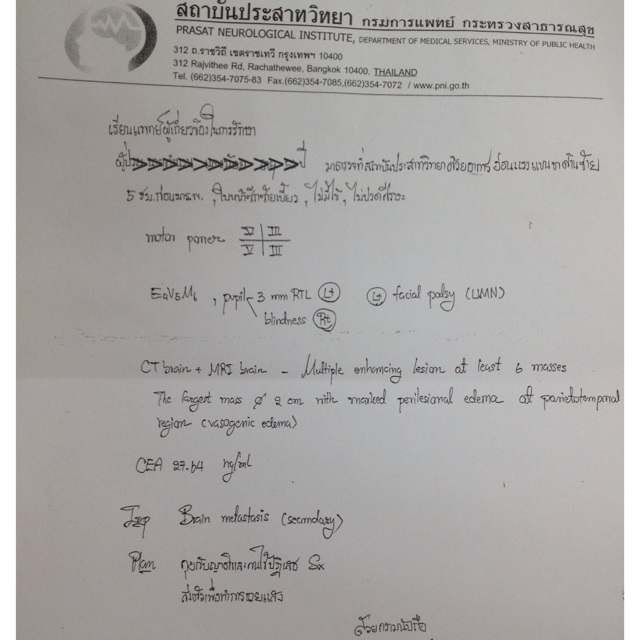 สถาบันประสาทวิทยา กรมการแพทย์ กระทรวงสาธารณสุข
PRASAT NEUROLOGICAL INSTITUTE, DEPARTMENT OF MEDICAL SERVICES, MINISTRY OF PUBLIC HEALTH
312 ถ.ราชวิถี เขตราชเทวี กรุงเทพฯ 10400
312 Rajvithee Rd, Rachathewee, Bangkok 10400. THAILAND
Tel. (662)354-7075-83 Fax.(662)354-7085,(662)354-7072 / www.pni.go.th
เรียนแพทย์ผู้เกี่ยวข้องในการรักษา
ปี มาตรวจที่สถาบันประสาทวิทยาด้วยอาการ อ่อนแรงแขนขาด้านซ้าย
5 ชม.ก่อนมารพ. , ใบหน้าซีกซ้ายเบี้ยว , ไม่มีไข้ , ไม่ปวดศีรษะ
motor power V III
V III
E4V5M6 , pupil 3 mm RTL Lt Lt facial palsy (UMN)
blindness Rt
CT brain + MRI brain - Multiple enhancing lesion at least 6 masses
The largest mass ø 2 cm with marked perilesional edema at parietotemporal
region (vasogenic edema)
CEA 27.64 ng/ml
Imp Brain metastasis (secondary)
Plan คุยกับญาติและคนไข้ปฏิเสธ Sx
ส่งตัวเพื่อทำการฉายแสง
ด้วยความนับถือ